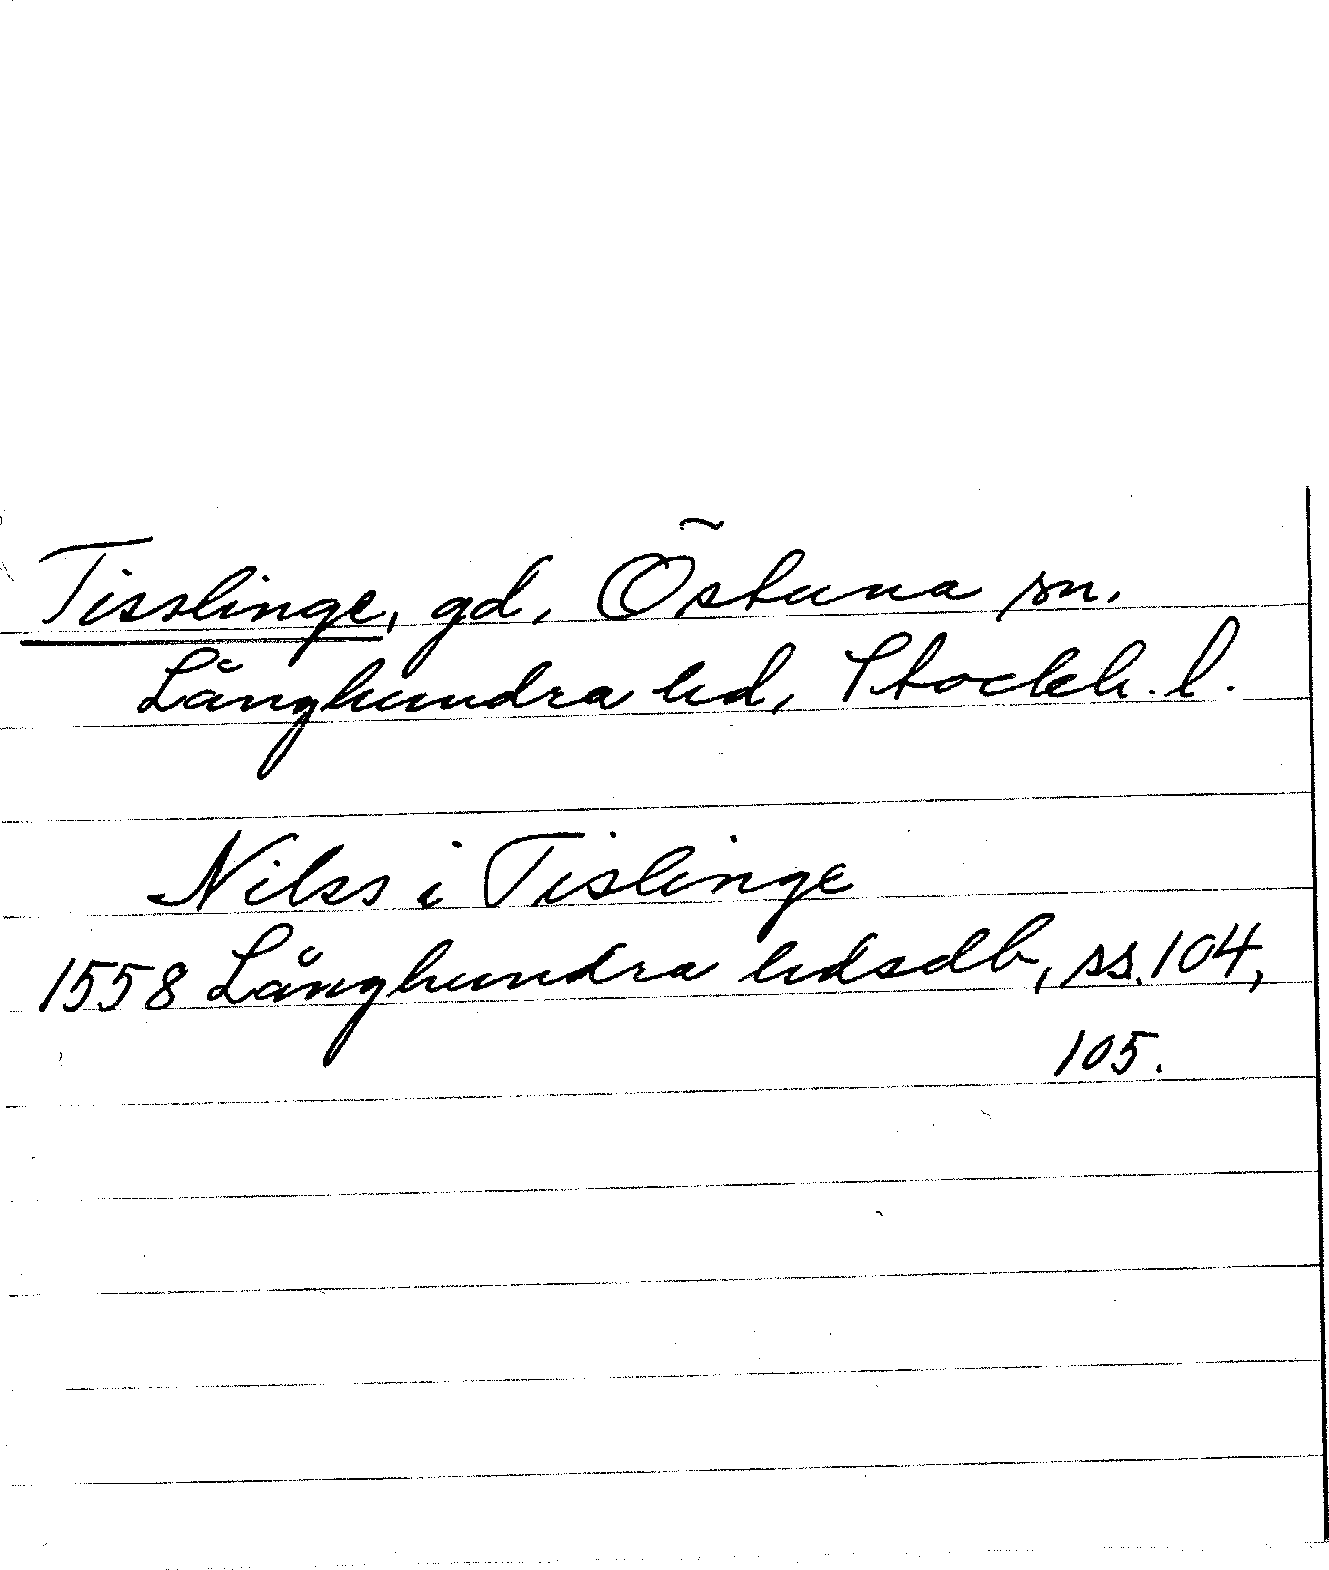 Tisslinge, gd, Östuna sn.
Långhundra hd, Stockh. l.
Nilss i Tislinge
1558 Långhundra hdsdb, ss. 104,
105.